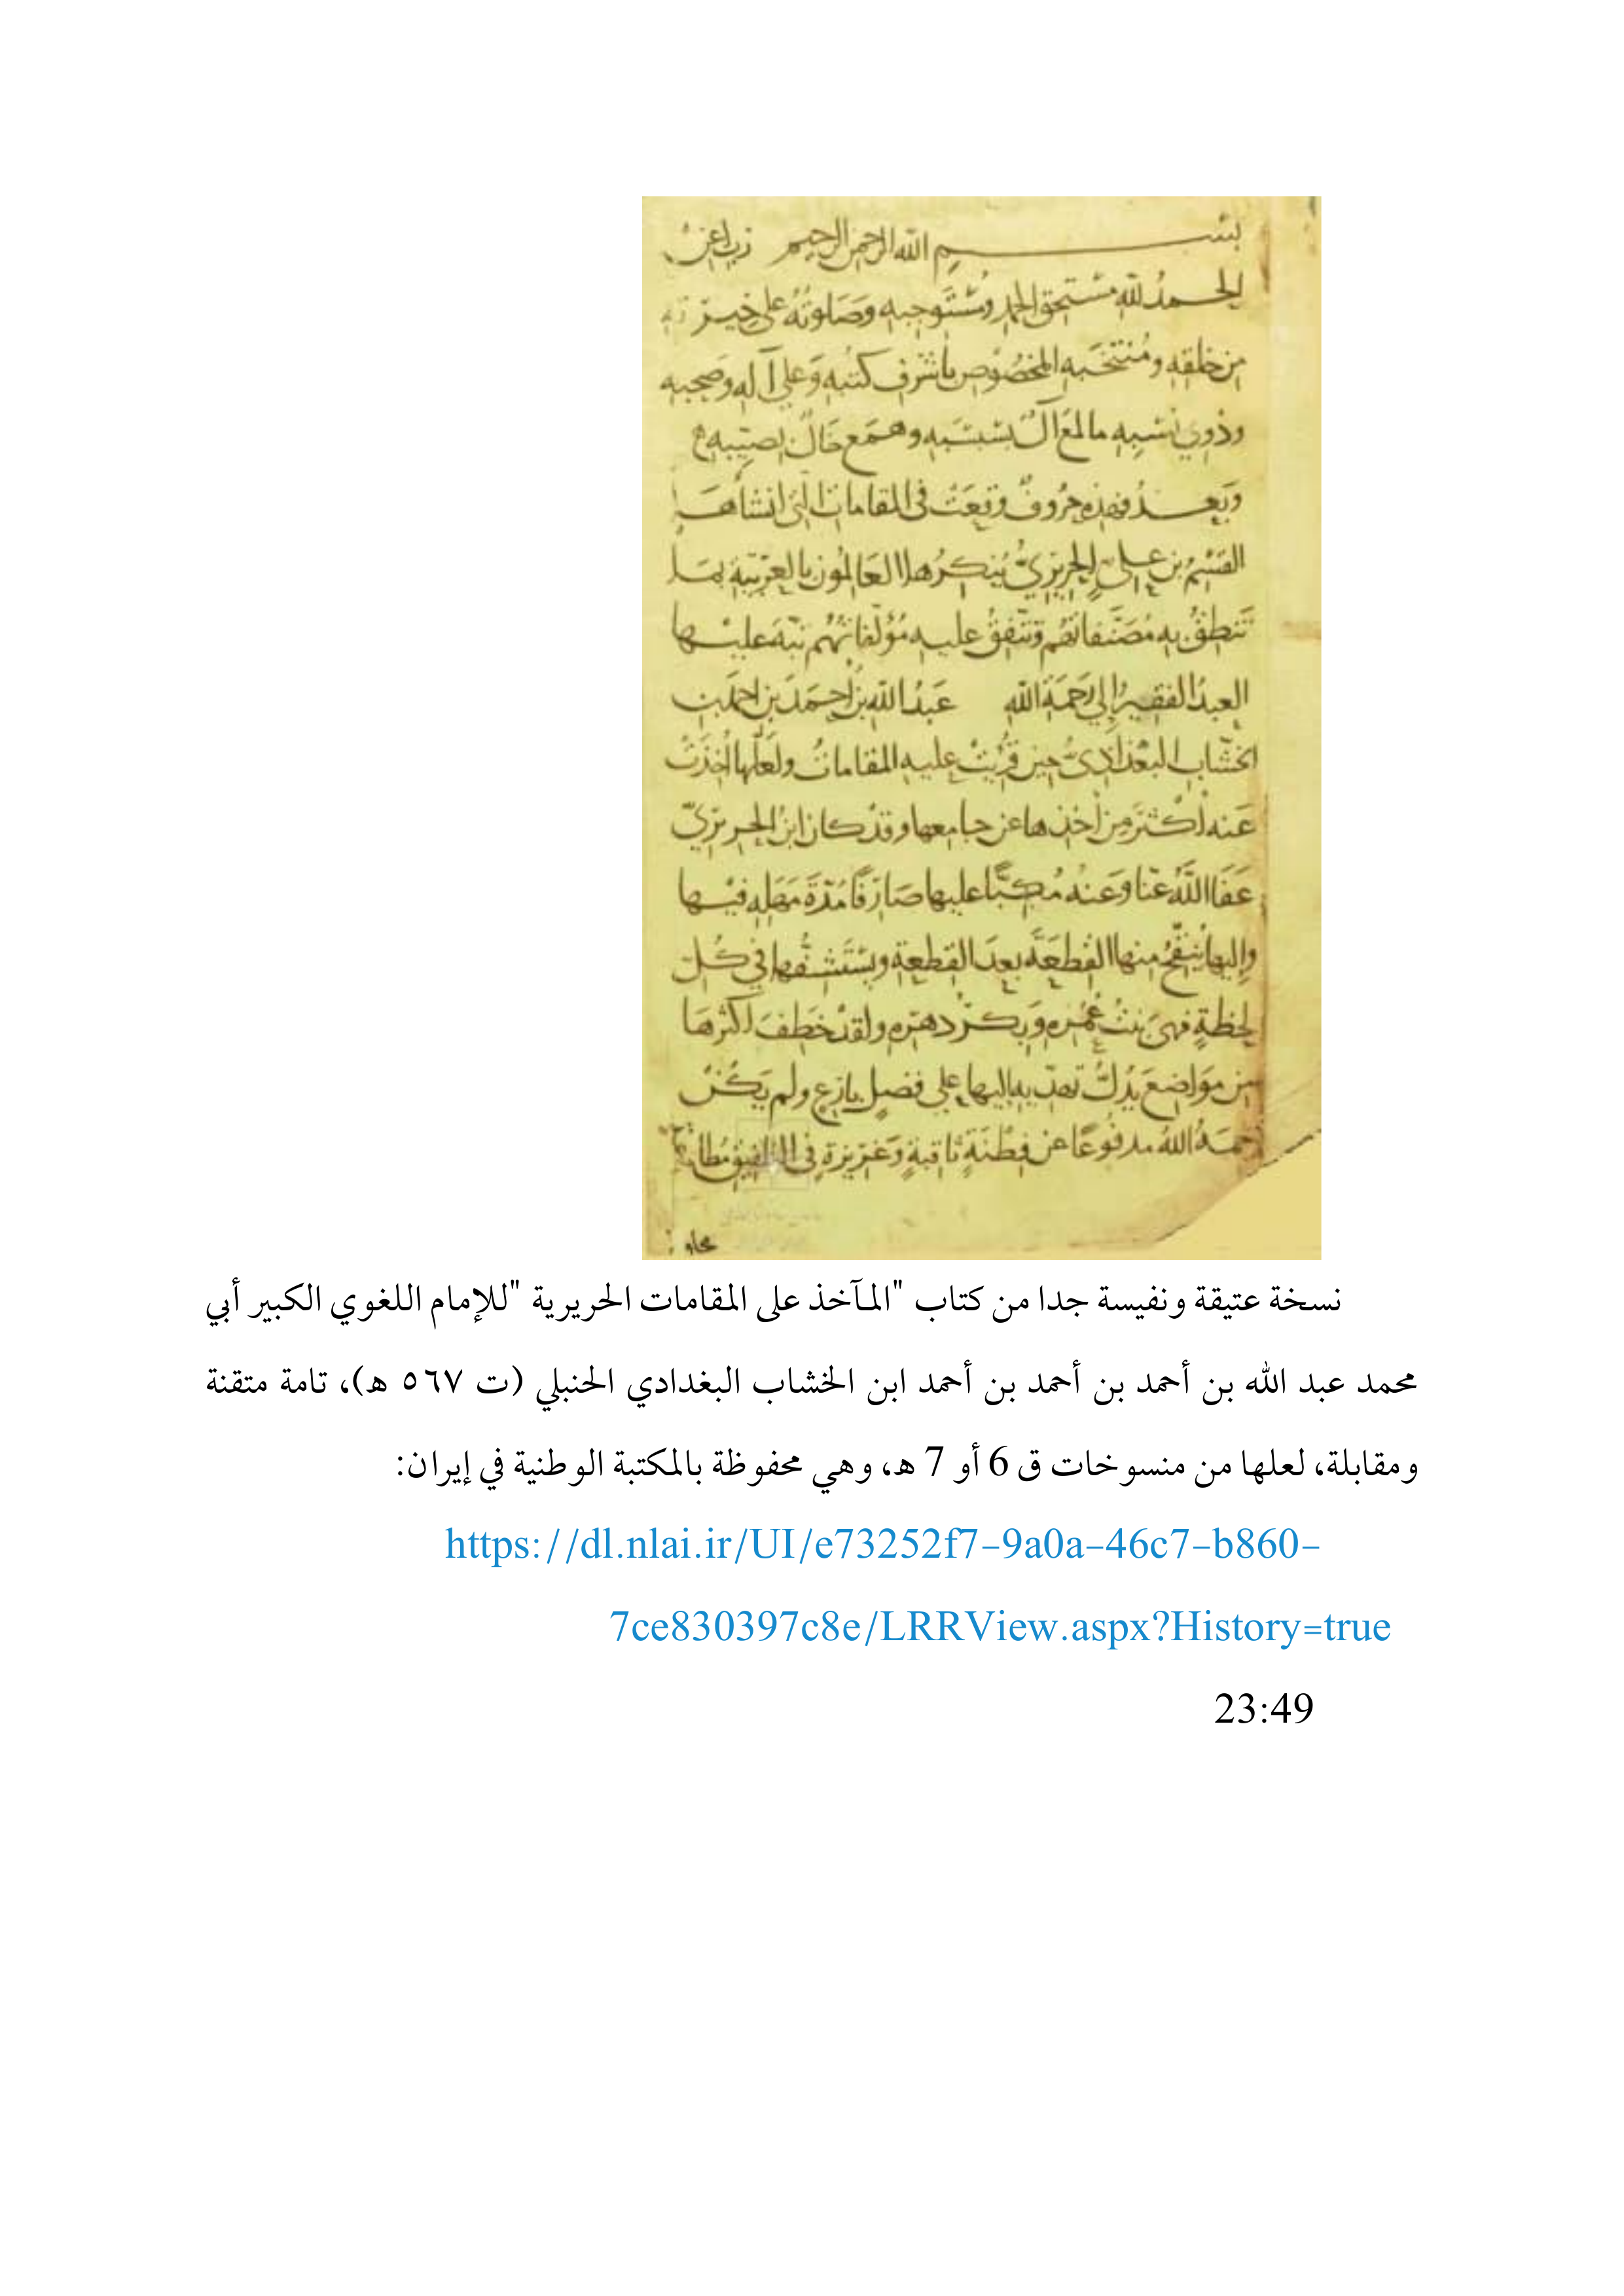 بسم الله الرحمن الرحيم رب أعن
الحمد لله مستحق الحمد ومستوجبه وصلوته على
من خلقه ومنتخبه المخصوص بأشرف كتبه وعلى آله وصحبه
وذوي نسبه ما لمع آل بسبسبه وهمع خال بصيبه
وبعد فهذه حروف وقعت في المقامات التي أنشأها
القسم بن علي الحريري ينكرها العالمون بالعربية بما
تنطق به مصنفاتهم وتتفق عليه مؤلفاتهم نبه عليها
العبد الفقير إلى رحمة الله عبد الله بن أحمد بن أحمد بن
الخشاب البغدادي حين قرئت عليه المقامات ولعلها أخذت
عنه أكثر من أخذها عن جامعها وقد كان ابن الحريري
عفا الله عنا وعنه مكبا عليها صارفا مدة مهله فيها
وإليها ينقح منها القطعة بعد القطعة ويستشفها في كل
لحظة فهي بنت عمره وبكر دهره ولقد خطف أكثرها
من مواضع يدل تهديه إليها على فضل بارع ولم يكن
رحمه الله مدفوعا عن فطنة ثاقبة وغريزة في التلفيق
نسخة عتيقة ونفيسة جدا من كتاب "المآخذ على المقامات الحريرية "للإمام اللغوي الكبير أبي
محمد عبد الله بن أحمد بن أحمد بن أحمد ابن الخشاب البغدادي الحنبلي (ت ٥٦٧ هـ)، تامة متقنة
ومقابلة، لعلها من منسوخات ق 6 أو 7 هـ، وهي محفوظة بالمكتبة الوطنية في إيران:
https://dl.nlai.ir/UI/e73252f7-9a0a-46c7-b860-
7ce830397c8e/LRRView.aspx?History=true
23:49